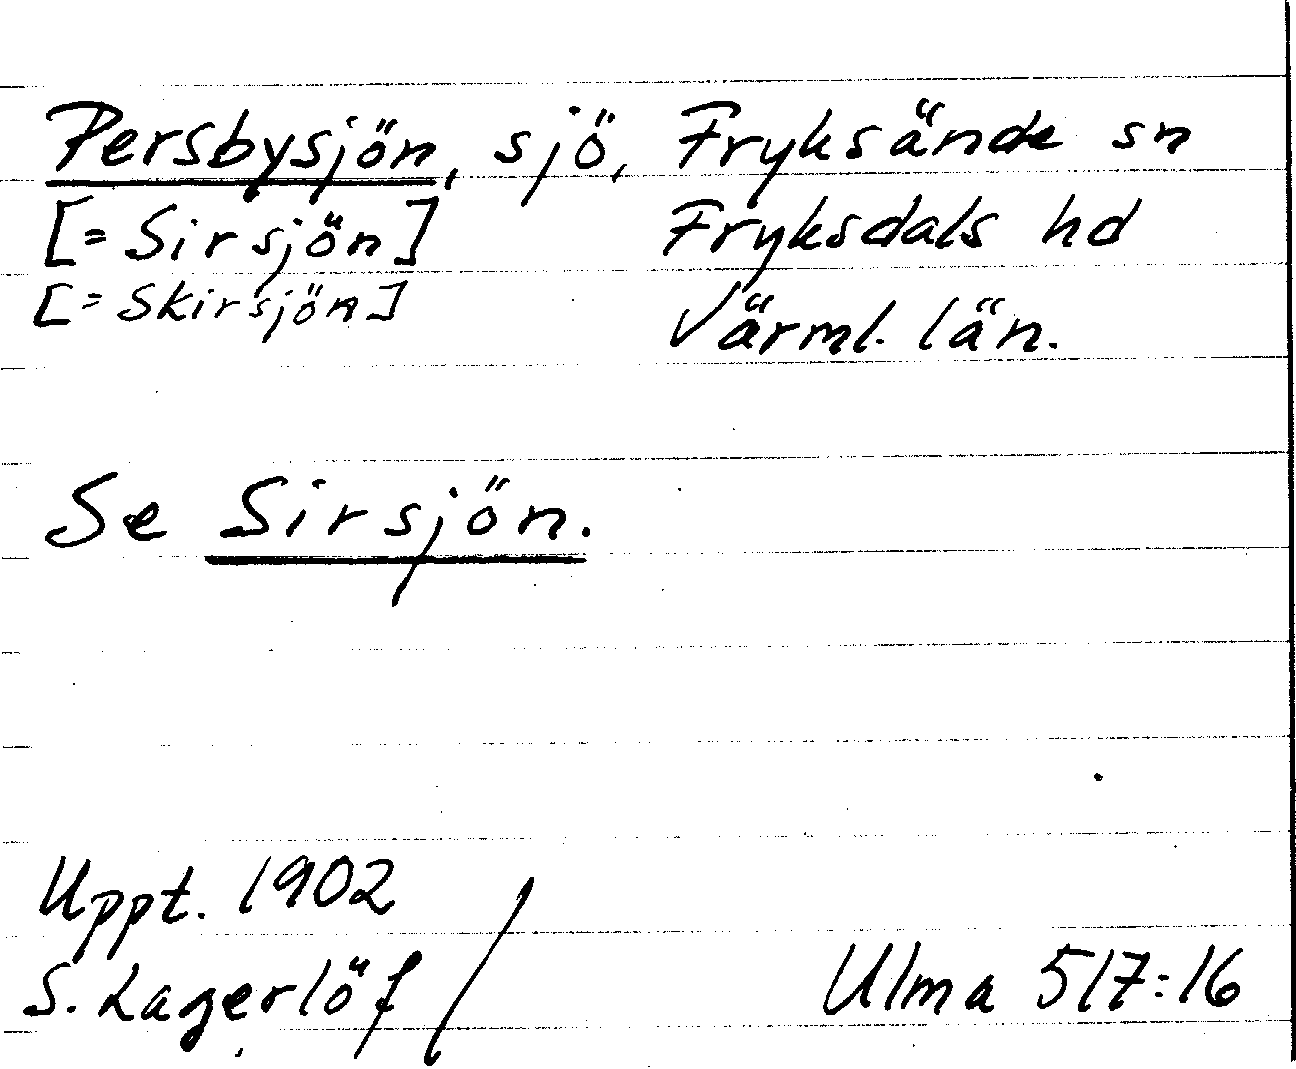 Persbysjön, sjö, Fryksände sn
[= Sirsjön] Fryksdals hd
[= Skirsjön] Värml. län.
Se Sirsjön.
Uppt. 1902
S. Lagerlöf / Ulma 517:16